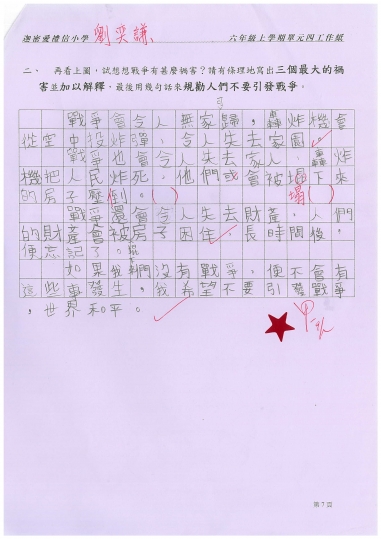 迦密愛禮信小學 劉奕謙 六年級上學期單元四工作紙
二、 再看上圖，試想想戰爭有甚麼禍害？請有條理地寫出三個最大的禍
害並加以解釋，最後用幾句話來規勸人們不要引發戰爭。
戰爭會令人無家可歸，轟炸機會
從空中投炸彈，令人失去家園。
戰爭也會令人失去家人，轟炸
機把人民炸死，他們或會被塌下來
的房子壓倒。( ) 塌( )
戰爭還會令人失去財產，人們
的財產會被房子困住，長時間後，
便忘記了。
如果我們沒有戰爭，便不會有
這些事發生，我希望不要引發戰爭
，世界和平。
甲
第7頁